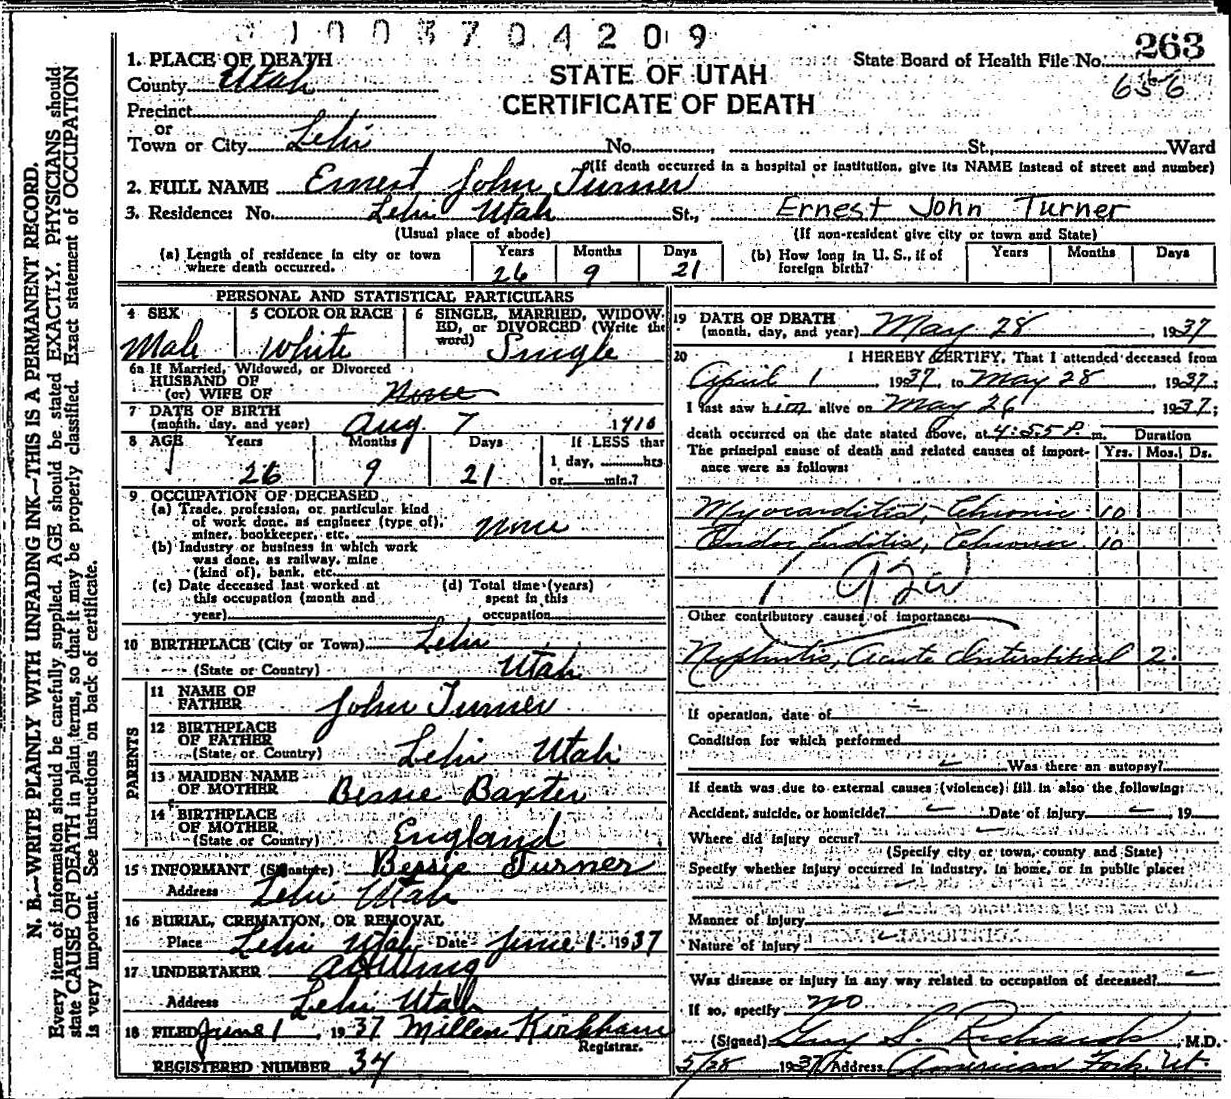 1003704209
263
State Board of Health File No.
656
STATE OF UTAH
CERTIFICATE OF DEATH
1. PLACE OF DEATH
County Utah
Precinct
or
Town or City Lehi No. St., Ward
(If death occurred in a hospital or institution, give its NAME instead of street and number)
2. FULL NAME Ernest John Turner
3. Residence: No. Lehi Utah St., Ernest John Turner
(Usual place of abode) (If non-resident give city or town and State)
(a) Length of residence in city or town where death occurred. Years 26 Months 9 Days 21
(b) How long in U. S., if of foreign birth? Years Months Days
PERSONAL AND STATISTICAL PARTICULARS
4 SEX Male
5 COLOR OR RACE White
6 SINGLE, MARRIED, WIDOWED, or DIVORCED (Write the word) Single
6a If Married, Widowed, or Divorced
HUSBAND OF
(or) WIFE OF None
7 DATE OF BIRTH
(month, day, and year) Aug. 7 1910
8 AGE Years 26 Months 9 Days 21 If LESS than 1 day, hrs or min.?
9 OCCUPATION OF DECEASED
(a) Trade, profession, or particular kind
of work done, as engineer (type of),
miner, bookkeeper, etc. None
(b) Industry or business in which work
was done, as railway, mine
(kind of), bank, etc.
(c) Date deceased last worked at
this occupation (month and
year)
(d) Total time (years)
spent in this
occupation
10 BIRTHPLACE (City or Town) Lehi
(State or Country) Utah
PARENTS
11 NAME OF
FATHER John Turner
12 BIRTHPLACE
OF FATHER
(State or Country) Lehi Utah
13 MAIDEN NAME
OF MOTHER Bessie Baxter
14 BIRTHPLACE
OF MOTHER
(State or Country) England
15 INFORMANT (Signature) Bessie Turner
Address Lehi Utah
16 BURIAL, CREMATION, OR REMOVAL
Place Lehi Utah Date June 1 1937
17 UNDERTAKER
Address Lehi Utah
18 FILED June 1, 1937 Kirkham
Registrar.
REGISTERED NUMBER 34
19 DATE OF DEATH
(month, day, and year) May 28, 1937
20 I HEREBY CERTIFY, That I attended deceased from
April 1 1937, to May 28, 1937;
I last saw him alive on May 26 1937;
death occurred on the date stated above, at 4:55 P. m. Duration
The principal cause of death and related causes of importance were as follows: Yrs. Mos. Ds.
Myocarditis, Chronic 10
Chronic 10
Other contributory causes of importance:
Nephritis, Acute Interstitial 2
If operation, date of
Condition for which performed
Was there an autopsy?
If death was due to external causes (violence) fill in also the following:
Accident, suicide, or homicide? Date of injury , 19
Where did injury occur?
(Specify city or town, county and State)
Specify whether injury occurred in industry, in home, or in public place:
Manner of injury
Nature of injury
Was disease or injury in any way related to occupation of deceased?
If so, specify no
(Signed) Guy S. Richards, M.D.
5/28 1937 Address American Fork. Ut.
N. B.—WRITE PLAINLY WITH UNFADING INK—THIS IS A PERMANENT RECORD.
Every item of information should be carefully supplied. AGE should be stated EXACTLY. PHYSICIANS should
state CAUSE OF DEATH in plain terms, so that it may be properly classified. Exact statement of OCCUPATION
is very important. See instructions on back of certificate.